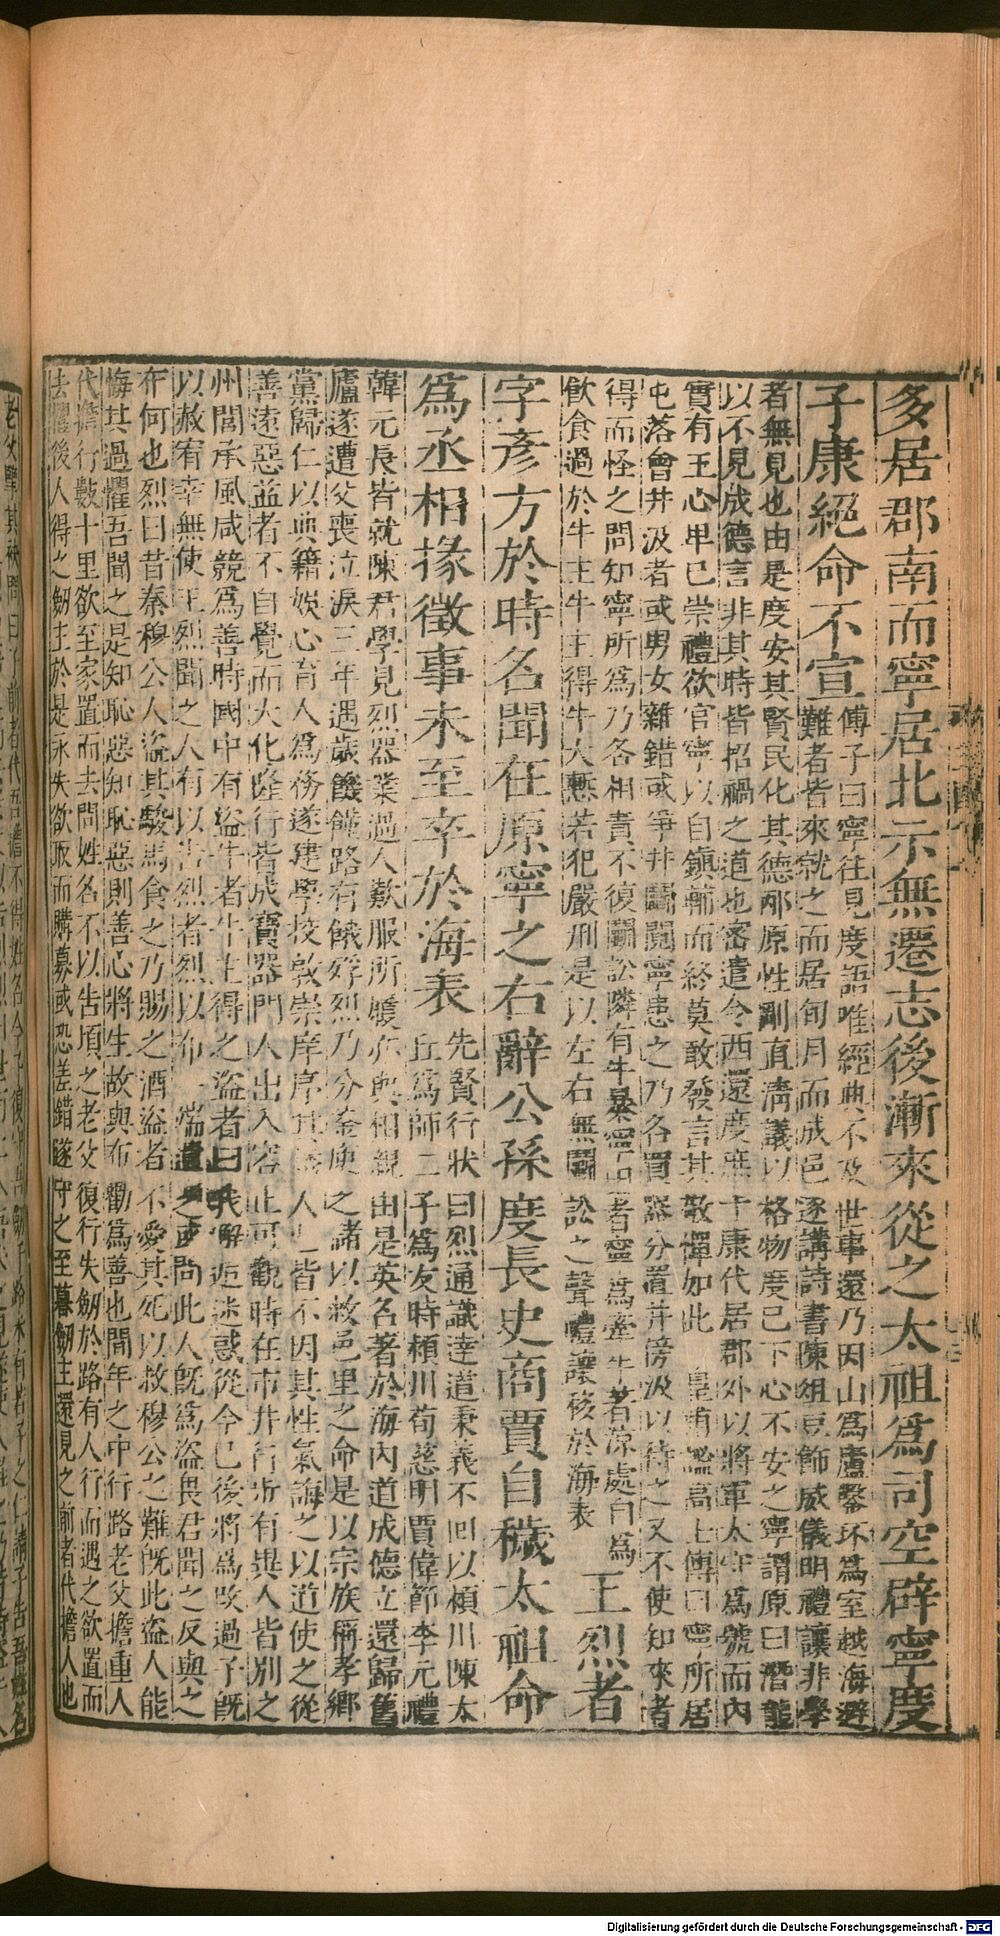 多居郡南而寧居北示無遷志後漸來從之太祖爲司空辟寧度
子康絕命不宣
傅子曰寧往見度語唯經典不及世事還乃因山爲廬鑿坏爲室越海避
難者皆來就之而居旬月而成邑遂講詩書陳俎豆飾威儀明禮讓非學
者無見也由是度安其賢民化其德邴原性剛直清議以格物度已下心不安之寧謂原曰潛龍
以不見成德言非其時皆招禍之道也密遣令西還度庶子康代居郡外以將軍太守爲號而內
實有王心卑已崇禮欲官寧以自鎮輔而終莫敢發言其敬憚如此 皇甫謐高士傳曰寧所居
屯落會井汲者或男女雜錯或爭井鬬鬩寧患之乃多買器分置井傍汲以待之又不使知來者
得而怪之問知寧所爲乃各相責不復鬬訟隣有牛暴寧田者寧爲牽牛著凉處自爲
飲食過於牛主牛主得牛大慙若犯嚴刑是以左右無鬬訟之聲禮讓移於海表
王烈者
字彥方於時名聞在原寧之右辭公孫度長史商賈自穢太祖命
爲丞相掾徵事未至卒於海表
先賢行狀曰烈通識達道秉義不回以潁川陳太
丘爲師二子爲友時潁川荀慈明賈偉節李元禮
韓元長皆就陳君學見烈器業過人歎服所履亦與相親由是英名著於海內道成德立還歸舊
廬遂遭父喪泣淚三年遇歲饑饉路有餓殍烈乃分釜庾之諸以救邑里之命是以宗族稱孝鄉
黨歸仁以典籍娛心育人爲務遂建學校敦崇庠序其誘人也皆不因其性氣誨之以道使之從
善遠惡益者不自覺而大化隆行皆成寶器門人出入容止可觀時在市井行步有異人皆別之
州閭承風咸競爲善時國中有盜牛者牛主得之盜者曰我邂逅迷惑從今已後將爲改過子旣
以赦宥幸無使王烈聞之人有以告烈者烈以布一端遺之或問此人旣爲盜畏君聞之反與之
布何也烈曰昔秦穆公人盜其駿馬食之乃賜之酒盜者不愛其死以救穆公之難旣此盜人能
悔其過懼吾聞之是知恥惡知恥惡則善心將生故與布勸爲善也間年之中行路老父擔重人
代擔行數十里欲至家置而去問姓名不以告頃之老父復行失劒於路有人行而遇之欲置而
去懼後人得之劒主於是永失欲取而購募或恐差錯遂守之至暮劒主還見之前者代擔人也
老父擥其袂問曰子前者代吾擔不得姓名今子復守吾劒于路未有若子之仁請子告吾姓名
Digitalisierung gefördert durch die Deutsche Forschungsgemeinschaft - DFG